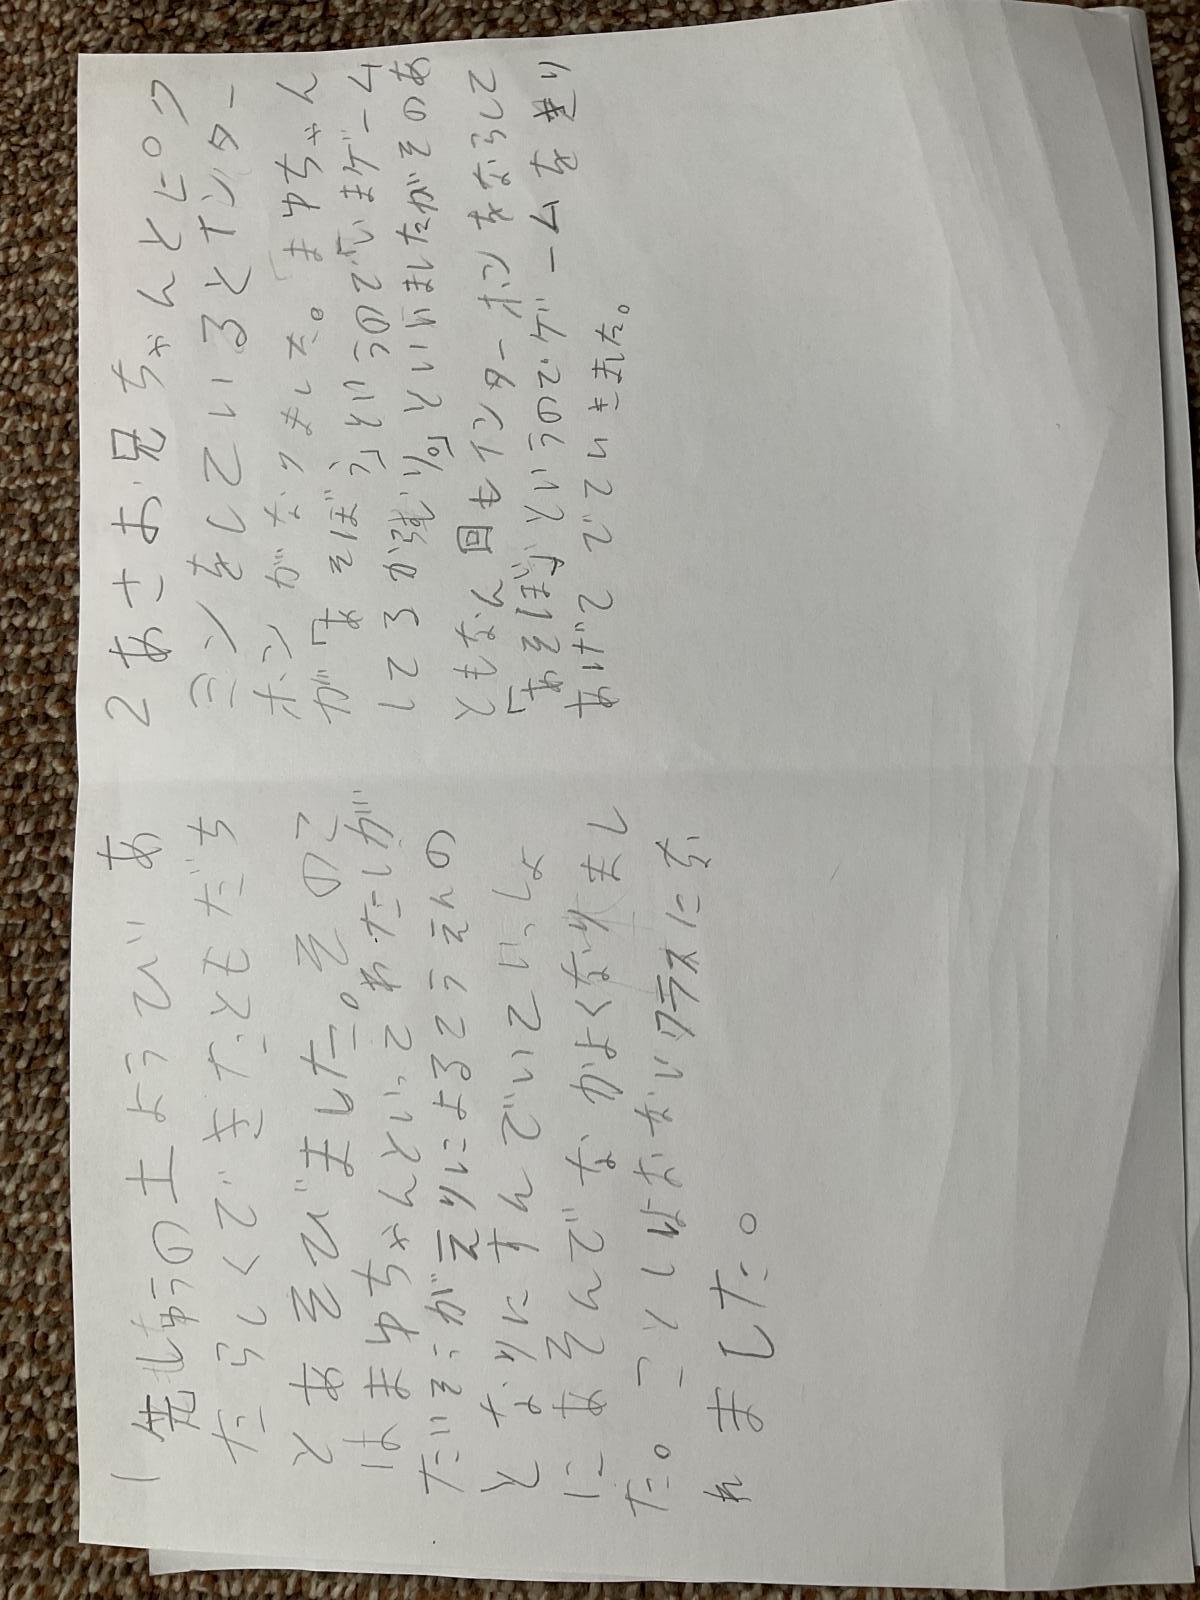 1 先しゅうの土ようびあ
たらしくできたともだち
とあそびました。そのこ
はまゆちゃんといってわたしが
たいそうがえりによるこうえんの
となりにすんでいていっしょ
にあそんでなかよくなりまし
た。ことしはおないクラスにな
れました。
2あさお兄ちゃんとピク
ミンをしているとインター
ホンがなりました。「まゆちゃん
が「あそぼう」というので「いまゲーム
してるから強り。」といいましたがそのあ
ともなん回もインターホンをならして
「あそぼ」というのでゲームをきり
あげてでていきました。